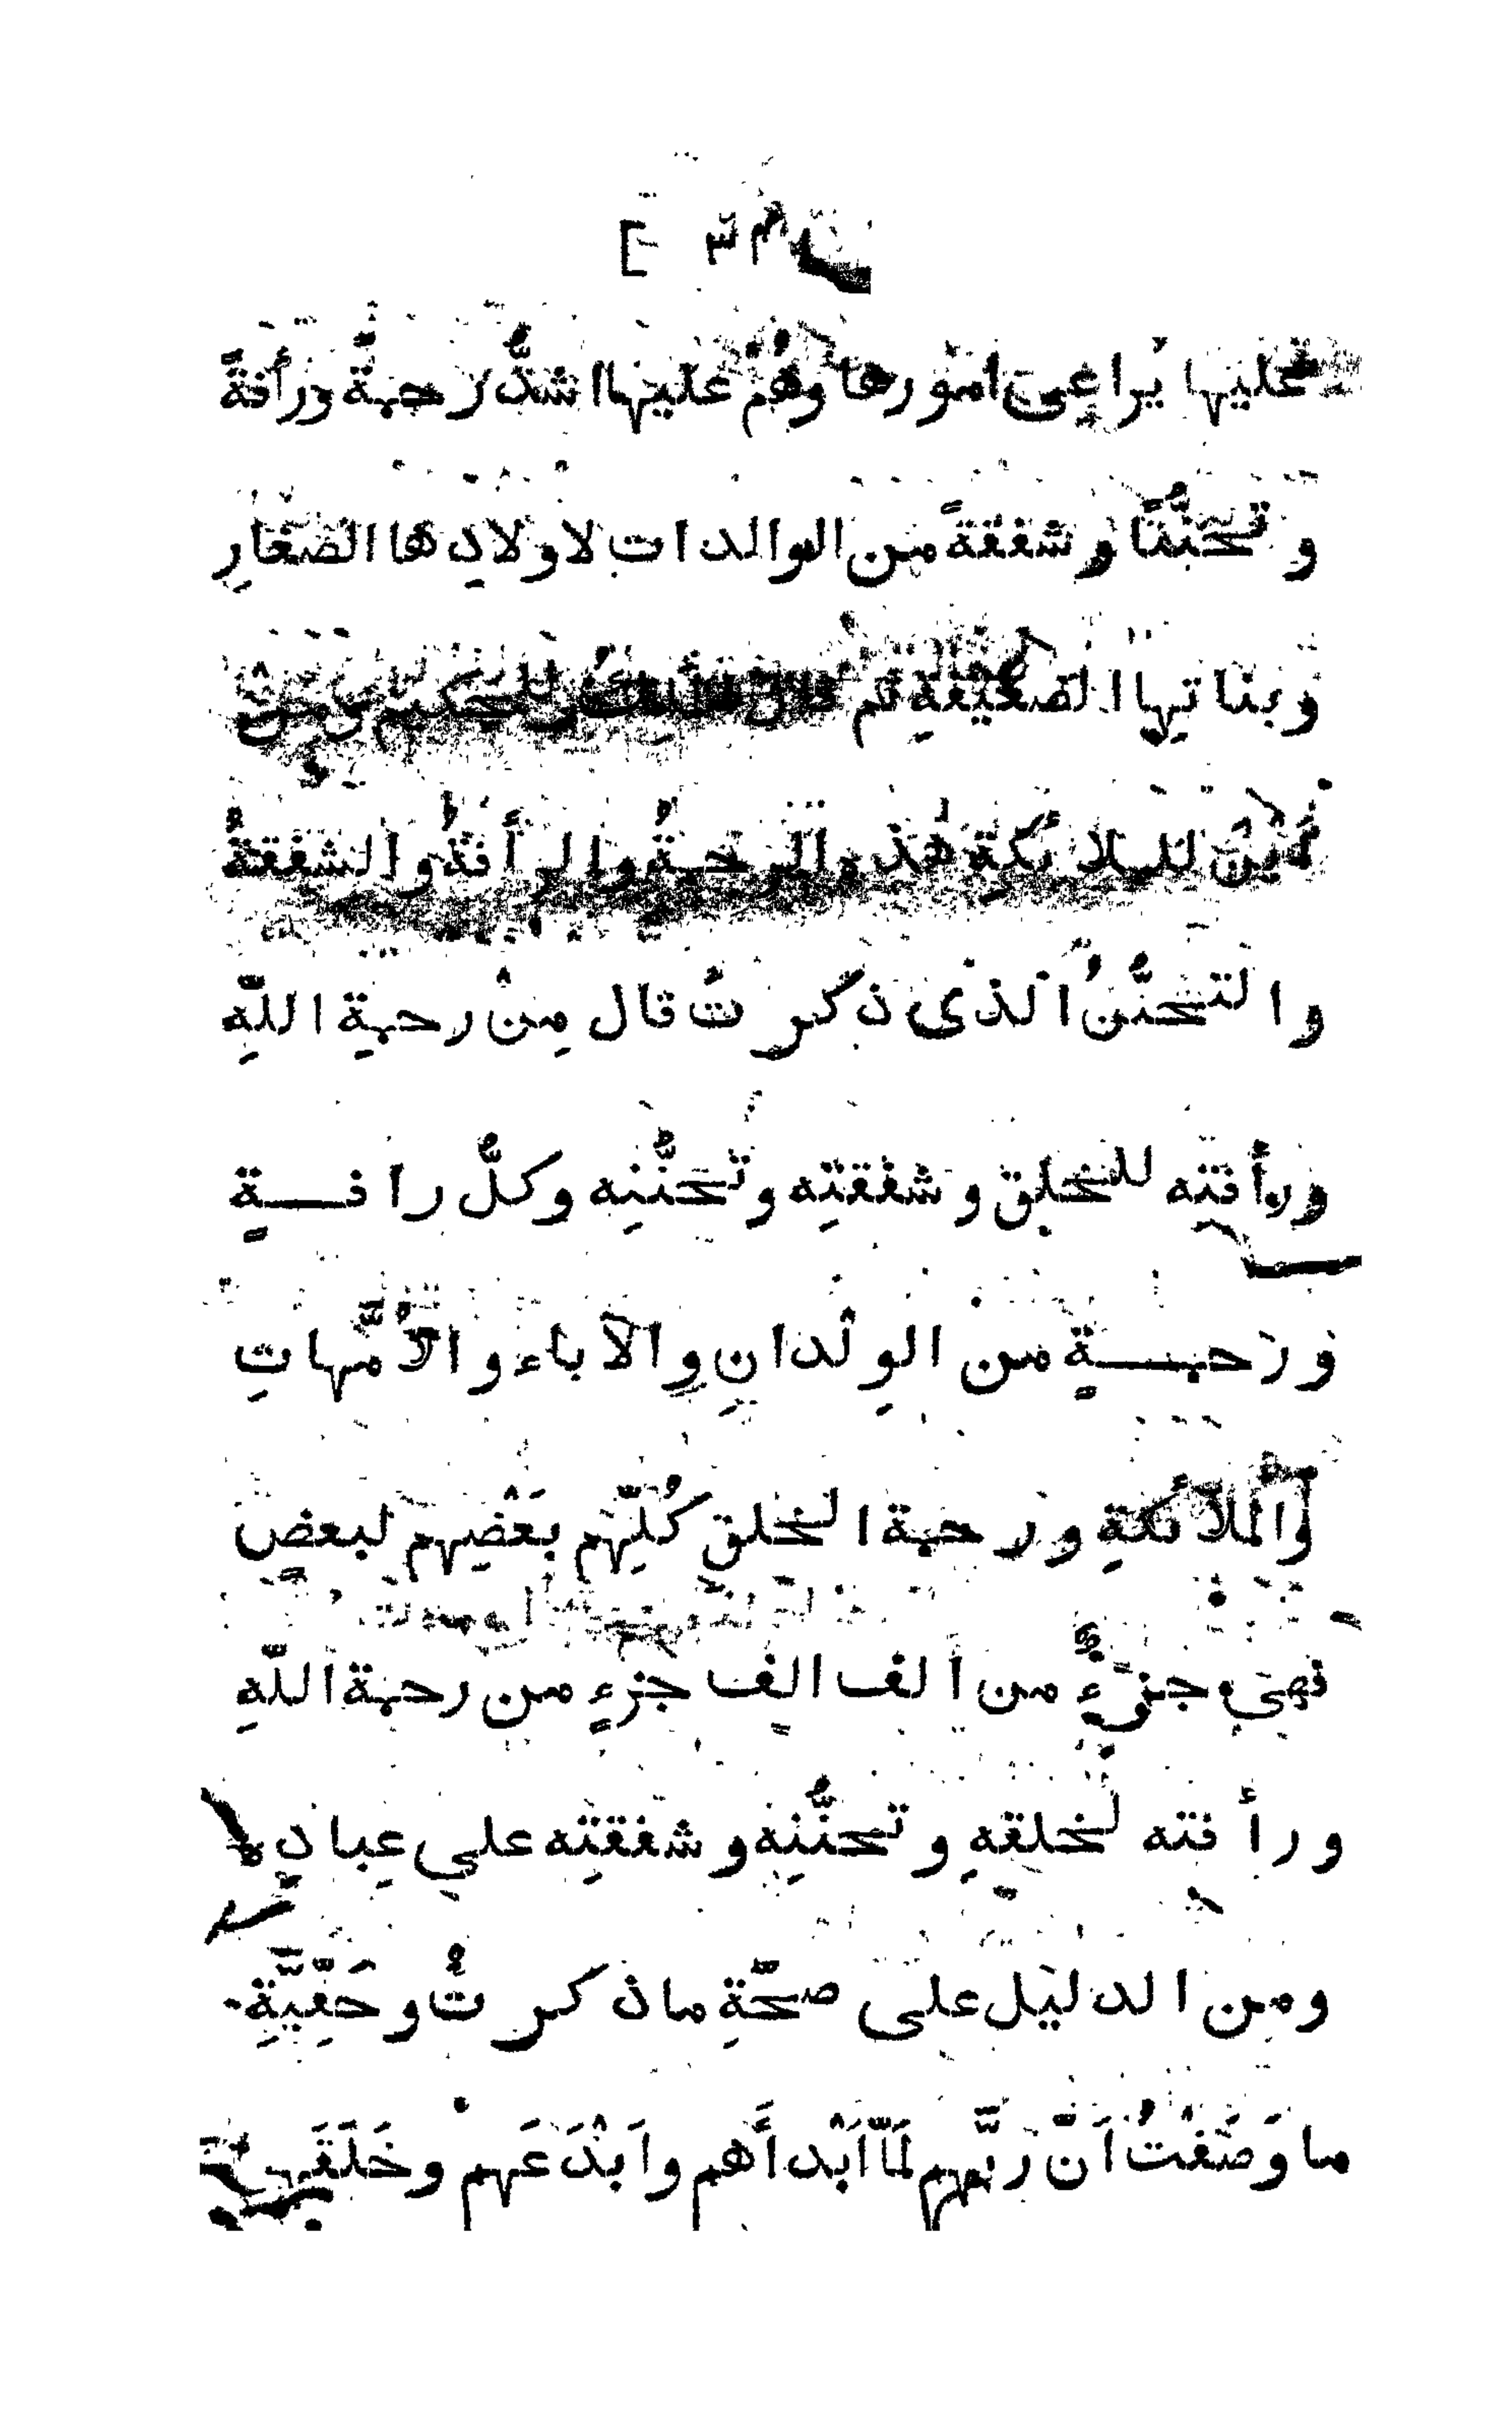 عليها يُراعى امورها وهُم عليها اشدُّ رحمةً ورأفةً
و تحنُّنًا و شفقةً من الوالدات لاولادِها الصّغارِ
وبناتِها الضعيفةِ ثم قال
أيْنَ للملائكة هذه الرحمةُ والرأفةُ والشفقةُ
والتحنُّنُ الذى ذكرتَ قال مِنْ رحمةِ اللّهِ
ورأفته للخلق وشفقتِه وتحنُّنِه وكلُّ رافــــةٍ
ورحمــــةٍ من الوِلْدانِ والآباء والأُمَّهاتِ
والملائكةِ ورحمة الخلق كُلِّهم بَعْضِهم لبعضٍ
فهى جزءٌ من ألف الف جزءٍ من رحمة اللّهِ
ورأفته لخلقهِ وتحنُّنِه وشفقتِه على عِبادِه
ومن الدليل على صحّةِ ما ذكرتُ وحَقِّيَّةِ
ما وَصَفْتُ اَنّ ربَّهم لَمّا اَبْدأَهم واَبْدَعَهم وخَلَقَهم